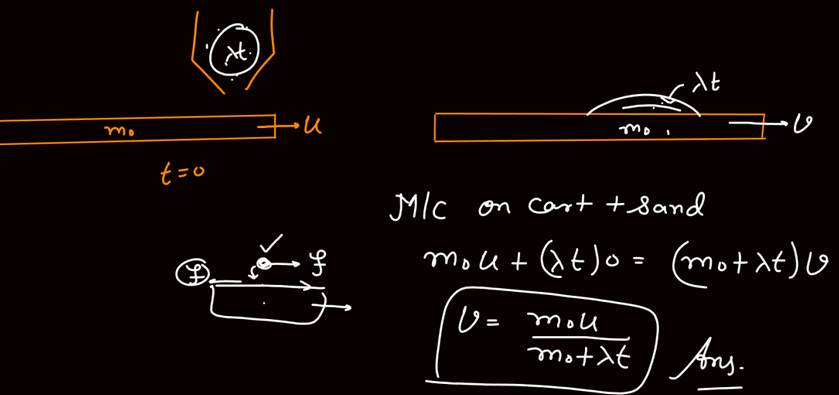 λt
λt
m₀ → u
m₀ → v
t=0
M/c on cart + sand
f f
m₀u + (λt)0 = (m₀+λt)v
v = m₀u / m₀+λt Ans.